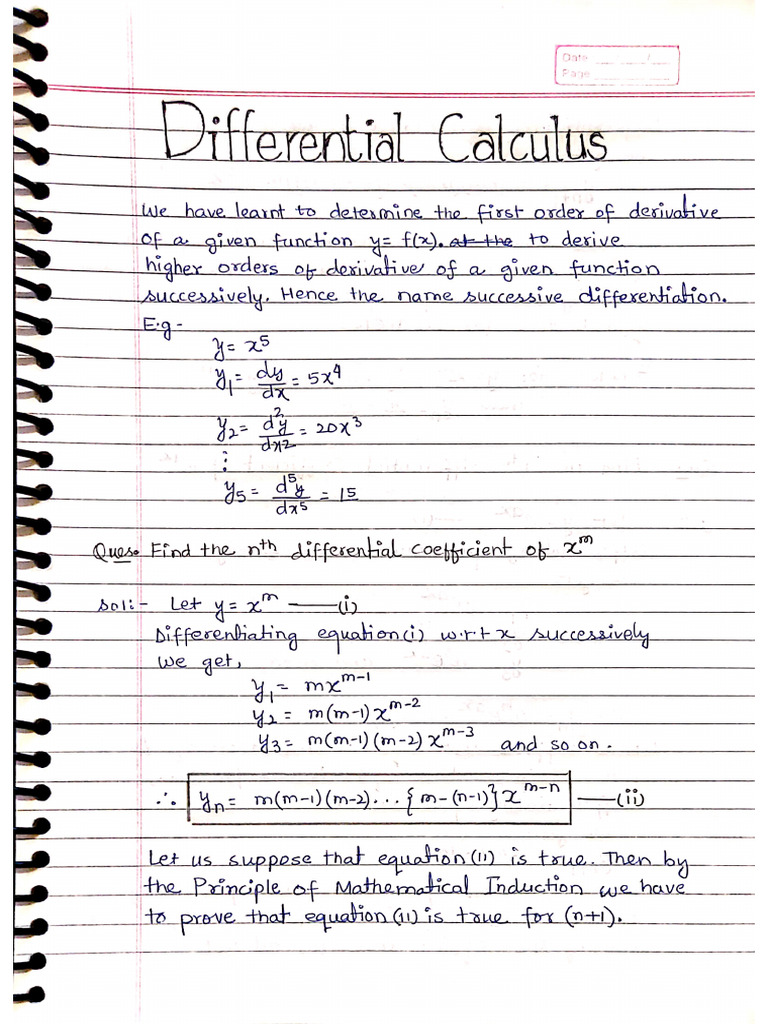 Date ______/___
Page ____________
Differential Calculus
We have learnt to determine the first order of derivative
of a given function y= f(x). at the to derive
higher orders of derivative of a given function
successively. Hence the name successive differentiation.
E.g-
y= x⁵
y₁= dy/dx = 5x⁴
y₂= d²y/dx² = 20x³
⋮
y₅= d⁵y/dx⁵ = 15
Ques. Find the nth differential coefficient of xᵐ
Sol:- Let y= xᵐ ——(i)
Differentiating equation(i) w.r.t x successively
We get,
y₁= mxᵐ⁻¹
y₂= m(m-1)xᵐ⁻²
y₃= m(m-1)(m-2)xᵐ⁻³ and so on.
∴ yₙ= m(m-1)(m-2)...{m-(n-1)}xᵐ⁻ⁿ ——(ii)
Let us suppose that equation (ii) is true. Then by
the Principle of Mathematical Induction we have
to prove that equation (ii) is true for (n+1).